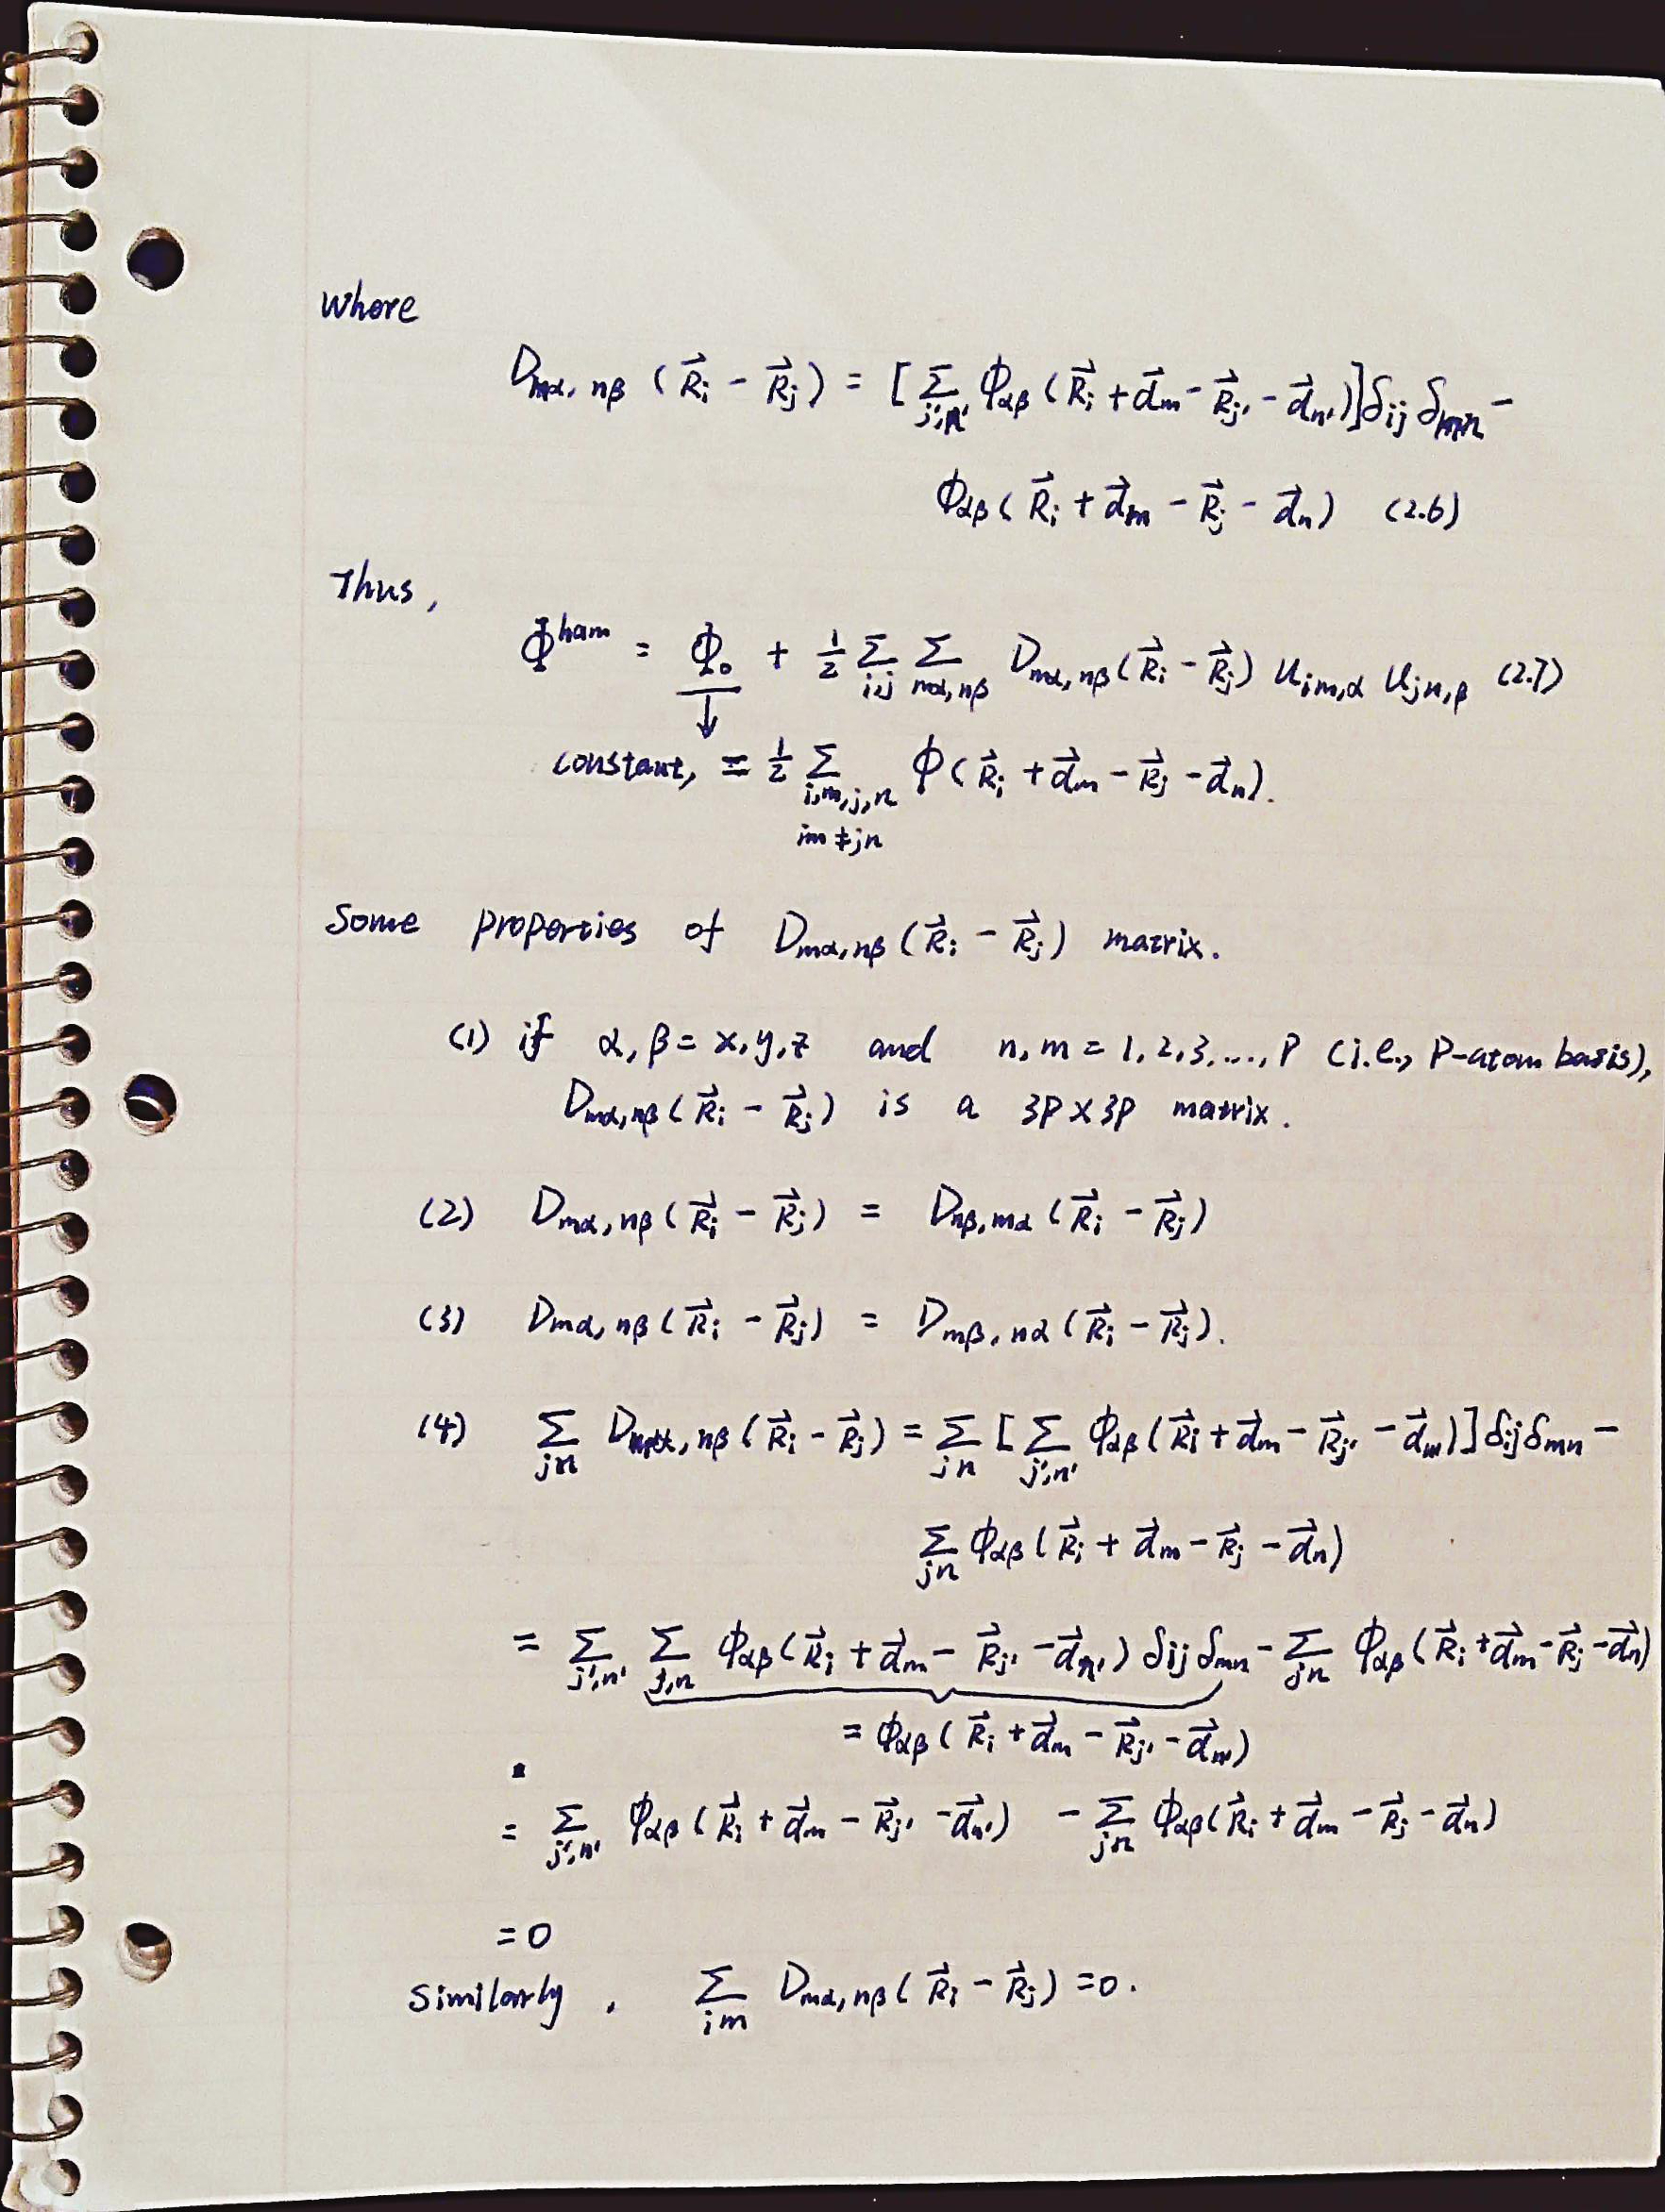 where
D_{mα, nβ} (\vec{R}_i - \vec{R}_j) = [\sum_{j',n'} ϕ_{αβ} (\vec{R}_i + \vec{d}_m - \vec{R}_{j'} - \vec{d}_{n'})] δ_{ij} δ_{mn} -
ϕ_{αβ} (\vec{R}_i + \vec{d}_m - \vec{R}_j - \vec{d}_n) (2.6)
Thus,
Φ^{ham} = Φ_0 + \frac{1}{2} \sum_{ij} \sum_{mα, nβ} D_{mα, nβ} (\vec{R}_i - \vec{R}_j) u_{im,α} u_{jn,β} (2.7)
↓
constant, = \frac{1}{2} \sum_{i,m,j,n} ϕ (\vec{R}_i + \vec{d}_m - \vec{R}_j - \vec{d}_n).
im ≠ jn
Some properties of D_{mα, nβ} (\vec{R}_i - \vec{R}_j) matrix.
(1) if α, β = x, y, z and n, m = 1, 2, 3, ..., P (i.e., P-atom basis),
D_{mα, nβ} (\vec{R}_i - \vec{R}_j) is a 3P × 3P matrix.
(2) D_{mα, nβ} (\vec{R}_i - \vec{R}_j) = D_{nβ, mα} (\vec{R}_i - \vec{R}_j)
(3) D_{mα, nβ} (\vec{R}_i - \vec{R}_j) = D_{mβ, nα} (\vec{R}_i - \vec{R}_j).
(4) \sum_{jn} D_{mα, nβ} (\vec{R}_i - \vec{R}_j) = \sum_{jn} [\sum_{j',n'} ϕ_{αβ} (\vec{R}_i + \vec{d}_m - \vec{R}_{j'} - \vec{d}_{n'})] δ_{ij} δ_{mn} -
\sum_{jn} ϕ_{αβ} (\vec{R}_i + \vec{d}_m - \vec{R}_j - \vec{d}_n)
= \sum_{j',n'} \sum_{j,n} ϕ_{αβ} (\vec{R}_i + \vec{d}_m - \vec{R}_{j'} - \vec{d}_{n'}) δ_{ij} δ_{mn} - \sum_{jn} ϕ_{αβ} (\vec{R}_i + \vec{d}_m - \vec{R}_j - \vec{d}_n)
= ϕ_{αβ} (\vec{R}_i + \vec{d}_m - \vec{R}_{j'} - \vec{d}_{n'})
= \sum_{j',n'} ϕ_{αβ} (\vec{R}_i + \vec{d}_m - \vec{R}_{j'} - \vec{d}_{n'}) - \sum_{jn} ϕ_{αβ} (\vec{R}_i + \vec{d}_m - \vec{R}_j - \vec{d}_n)
= 0
Similarly, \sum_{im} D_{mα, nβ} (\vec{R}_i - \vec{R}_j) = 0.